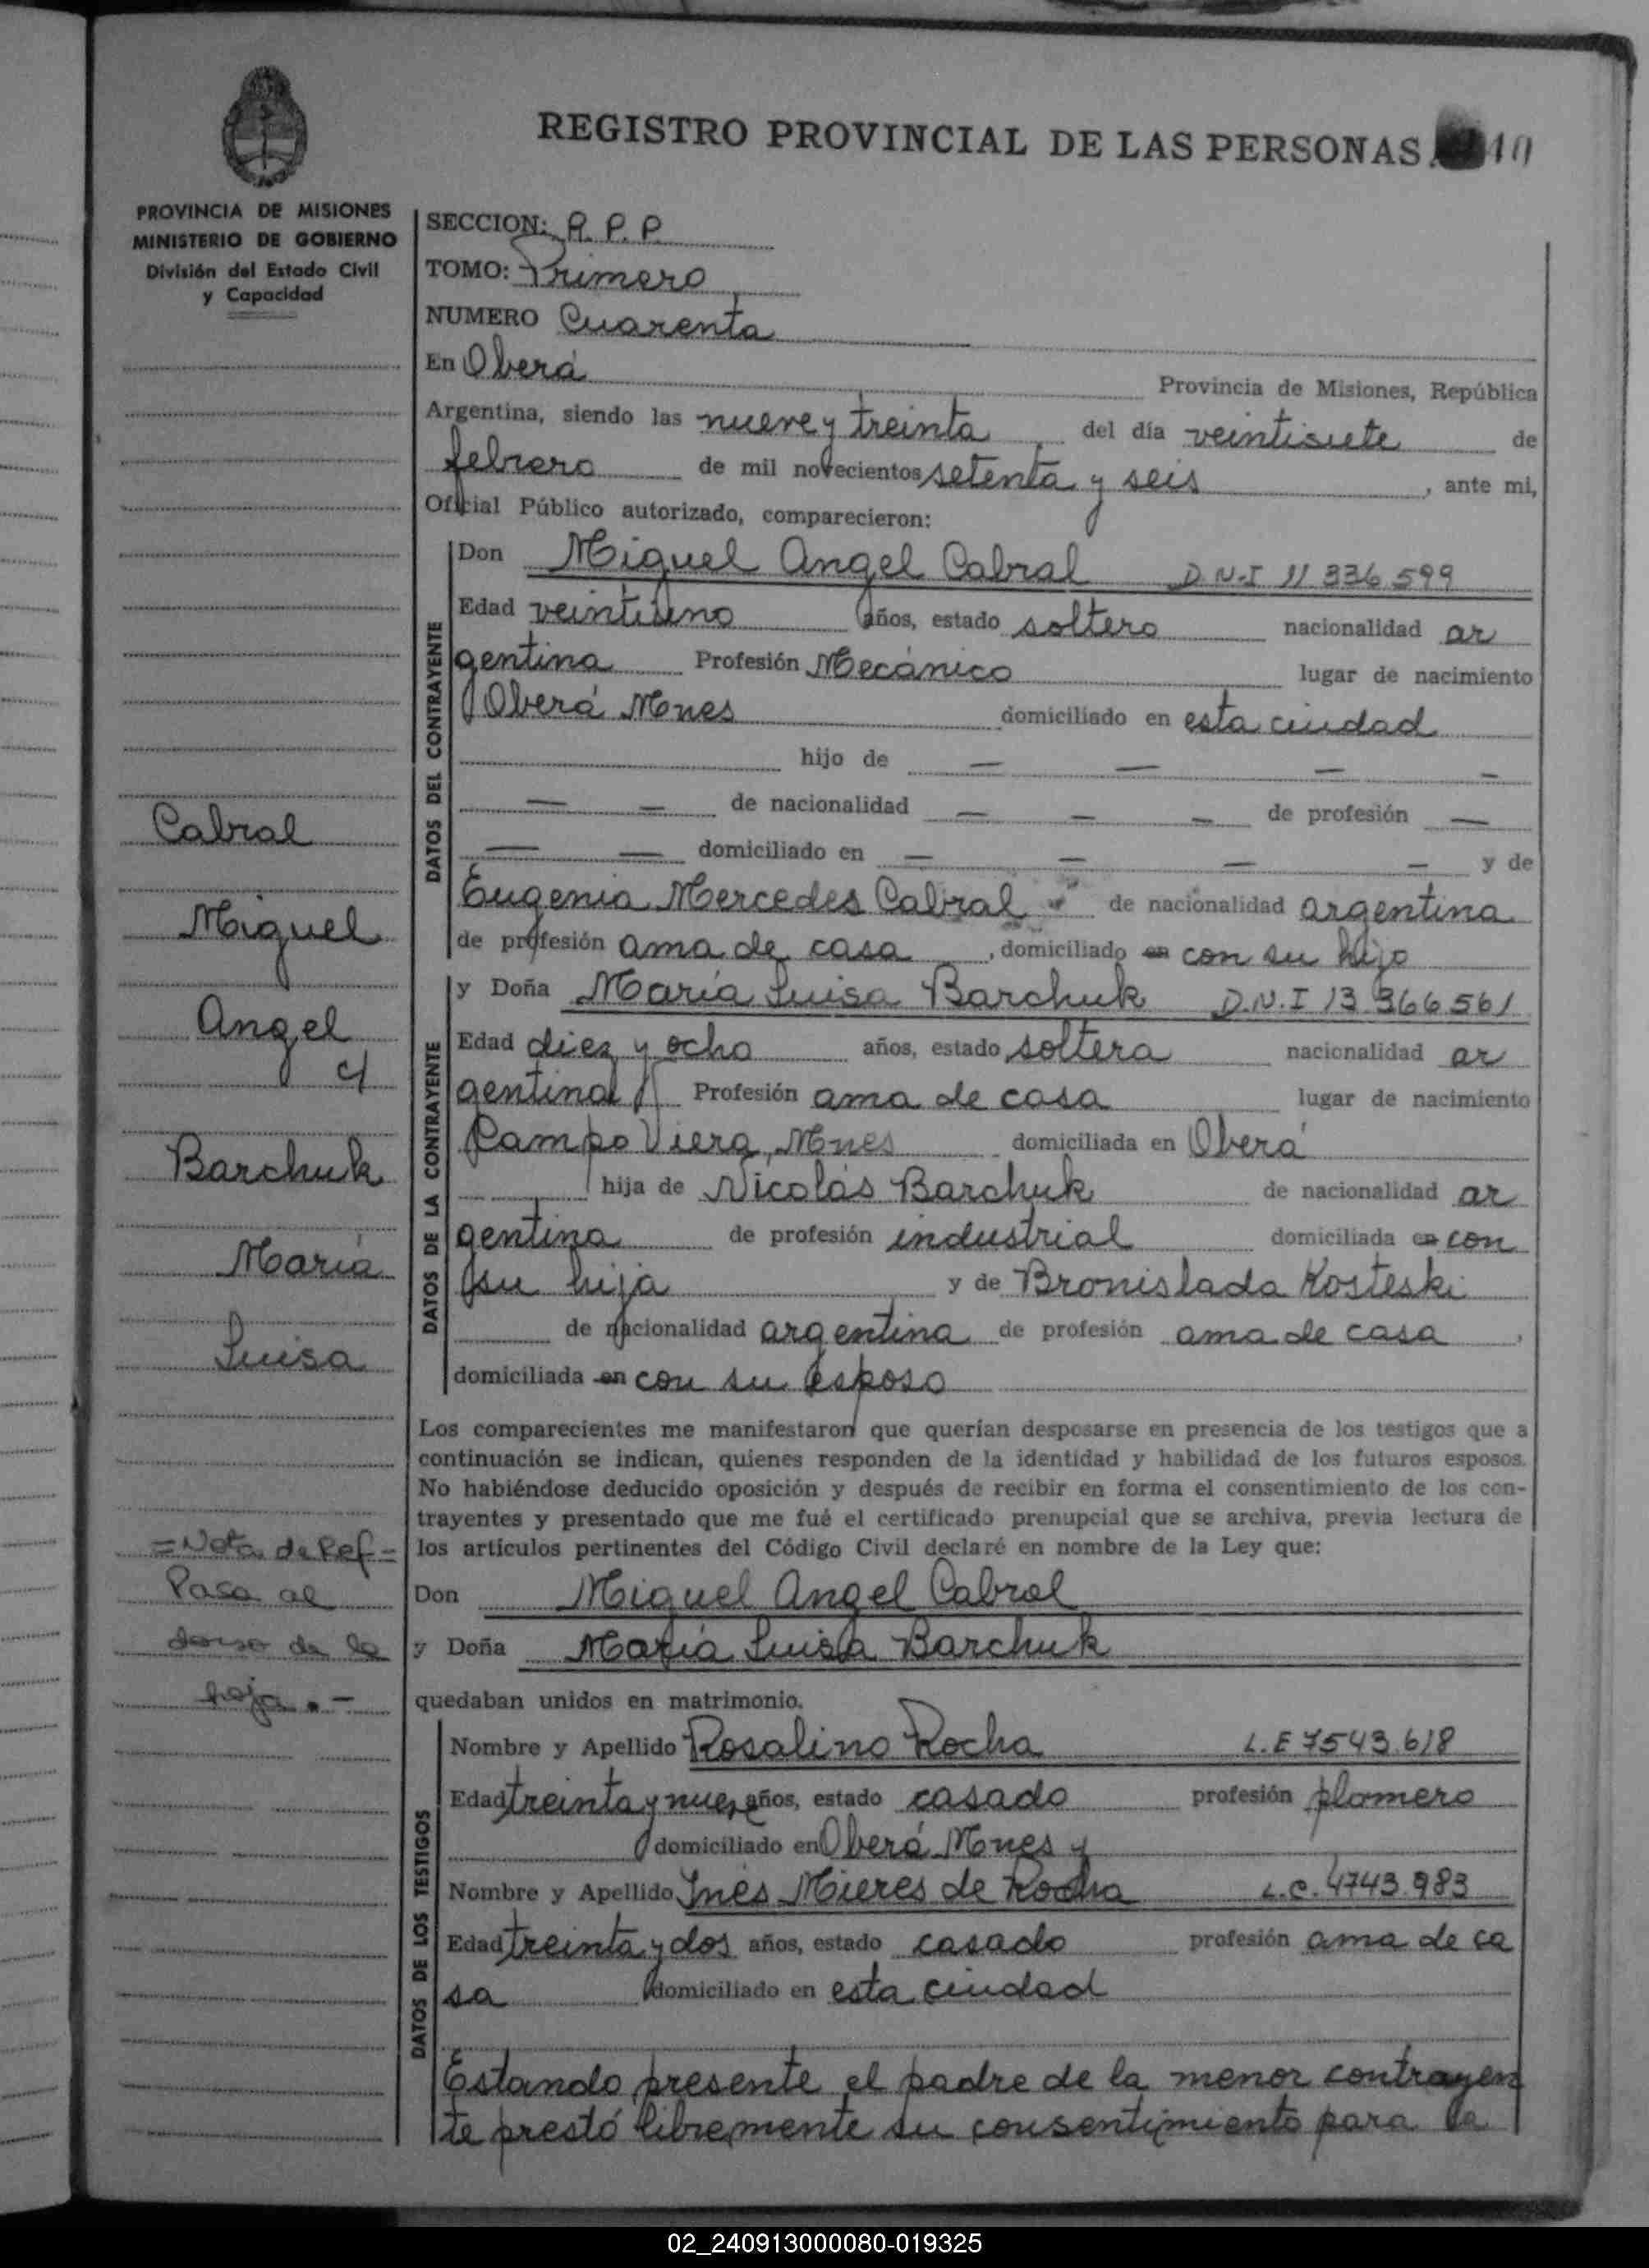 REGISTRO PROVINCIAL DE LAS PERSONAS
PROVINCIA DE MISIONES
MINISTERIO DE GOBIERNO
División del Estado Civil
y Capacidad
SECCION: R. P. P.
TOMO: Primero
NUMERO Cuarenta
En Oberá Provincia de Misiones, República
Argentina, siendo las nueve y treinta del día veintisiete de
febrero de mil novecientos setenta y seis, ante mi,
Oficial Público autorizado, comparecieron:
DATOS DEL CONTRAYENTE
Don Miguel Angel Cabral D.N.I 11 336 599
Edad veintiuno años, estado soltero nacionalidad ar
gentina Profesión Mecánico lugar de nacimiento
Oberá Mnes domiciliado en esta ciudad
hijo de — — — —
— — de nacionalidad — — — de profesión —
— — domiciliado en — — — — y de
Eugenia Mercedes Cabral de nacionalidad argentina
de profesión ama de casa, domiciliado en con su hijo
DATOS DE LA CONTRAYENTE
y Doña María Luisa Barchuk D.N.I 13 366 561
Edad diez y ocho años, estado soltera nacionalidad ar
gentina Profesión ama de casa lugar de nacimiento
Campo Viera, Mnes domiciliada en Oberá
hija de Nicolás Barchuk de nacionalidad ar
gentina de profesión industrial domiciliada en con
su hija y de Bronislada Kosteski
de nacionalidad argentina de profesión ama de casa,
domiciliada en con su esposo
Los comparecientes me manifestaron que querían desposarse en presencia de los testigos que a
continuación se indican, quienes responden de la identidad y habilidad de los futuros esposos.
No habiéndose deducido oposición y después de recibir en forma el consentimiento de los con-
trayentes y presentado que me fué el certificado prenupcial que se archiva, previa lectura de
los artículos pertinentes del Código Civil declaré en nombre de la Ley que:
Don Miguel Angel Cabral
y Doña María Luisa Barchuk
quedaban unidos en matrimonio.
DATOS DE LOS TESTIGOS
Nombre y Apellido Rosalino Rocha L.E 7543.618
Edad treinta y nueve años, estado casado profesión plomero
domiciliado en Oberá Mnes y
Nombre y Apellido Inés Mieres de Rocha L.C. 4743.983
Edad treinta y dos años, estado casado profesión ama de ca
sa domiciliado en esta ciudad
Estando presente el padre de la menor contrayen
te prestó libremente su consentimiento para la
Cabral
Miguel
Angel
c/
Barchuk
María
Luisa
=Nota de Ref=
Pasa al
dorso de la
hoja.-
02_240913000080-019325